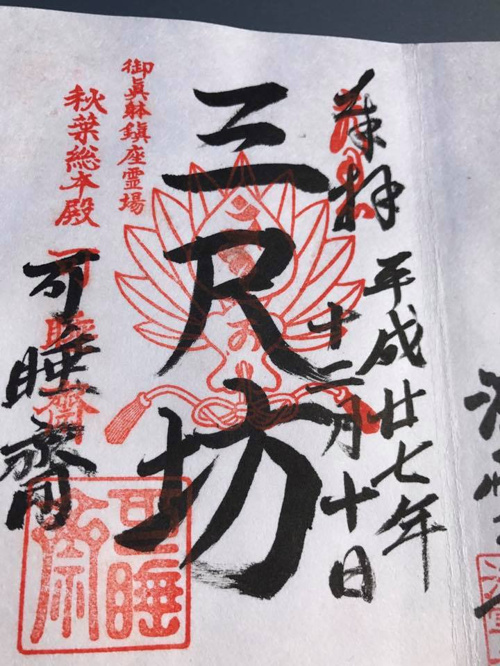 奉拝
平成廿七年
十二月十日
三尺坊
御眞躰鎮座霊場
秋葉総本殿
可睡齋
可睡齋
可睡齋